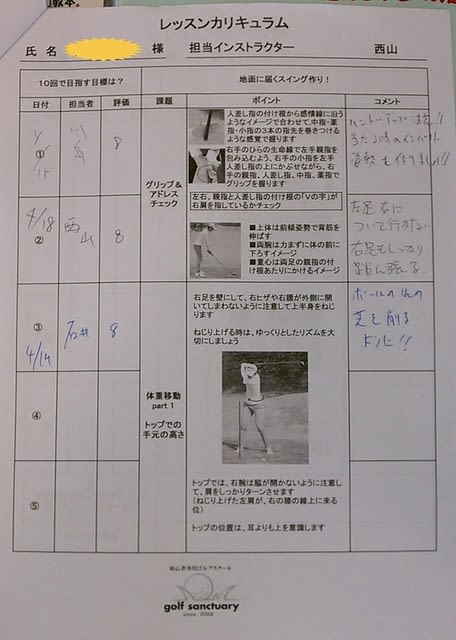 レッスンカリキュラム
氏 名 様 担当インストラクター 西山
10回で目指す目標は？ 地面に届くスイング作り！
日付 担当者 評価 課題 ポイント コメント
① 8
グリップ＆
アドレス
チェック
人差し指の付け根から感情線に沿う
ようなイメージで合わせて、中指・薬
指・小指の3本の指先を巻きつける
ような感覚で握ります
右手のひらの生命線で左手親指を
包み込むよう、右手の小指を左手
人差し指の上にかぶせながら、右
手の親指、人差し指、中指、薬指
でグリップを握ります
左右、親指と人差し指の付け根の「Vの字」が
右肩を指しているかチェック
4/18 ② 西山 8
■上体は前傾姿勢で背筋を
伸ばす
■両腕は力まずに体の前に
下ろすイメージ
■重心は両足の親指の付
け根あたりにかけるイメージ
左足右に
ついて行かない
右足もしっかり
踏ん張る
③ 4/14 石井 8
体重移動
part 1
トップでの
手元の高さ
右足を壁にして、右ヒザや右腰が外側に開
いてしまわないように注意して上半身をねじ
ります
ねじり上げる時は、ゆっくりとしたリズムを大
切にしましょう
ボールの
芝を削る
④
⑤
トップでは、右腕は脇が開かないように注意し
て、肩をしっかりターンさせます
（ねじり上げた左肩が、右の膝の線上に来る
位）
トップの位置は、耳よりも上を意識します
初心者専用ゴルフスクール
golf sanctuary
since 2008